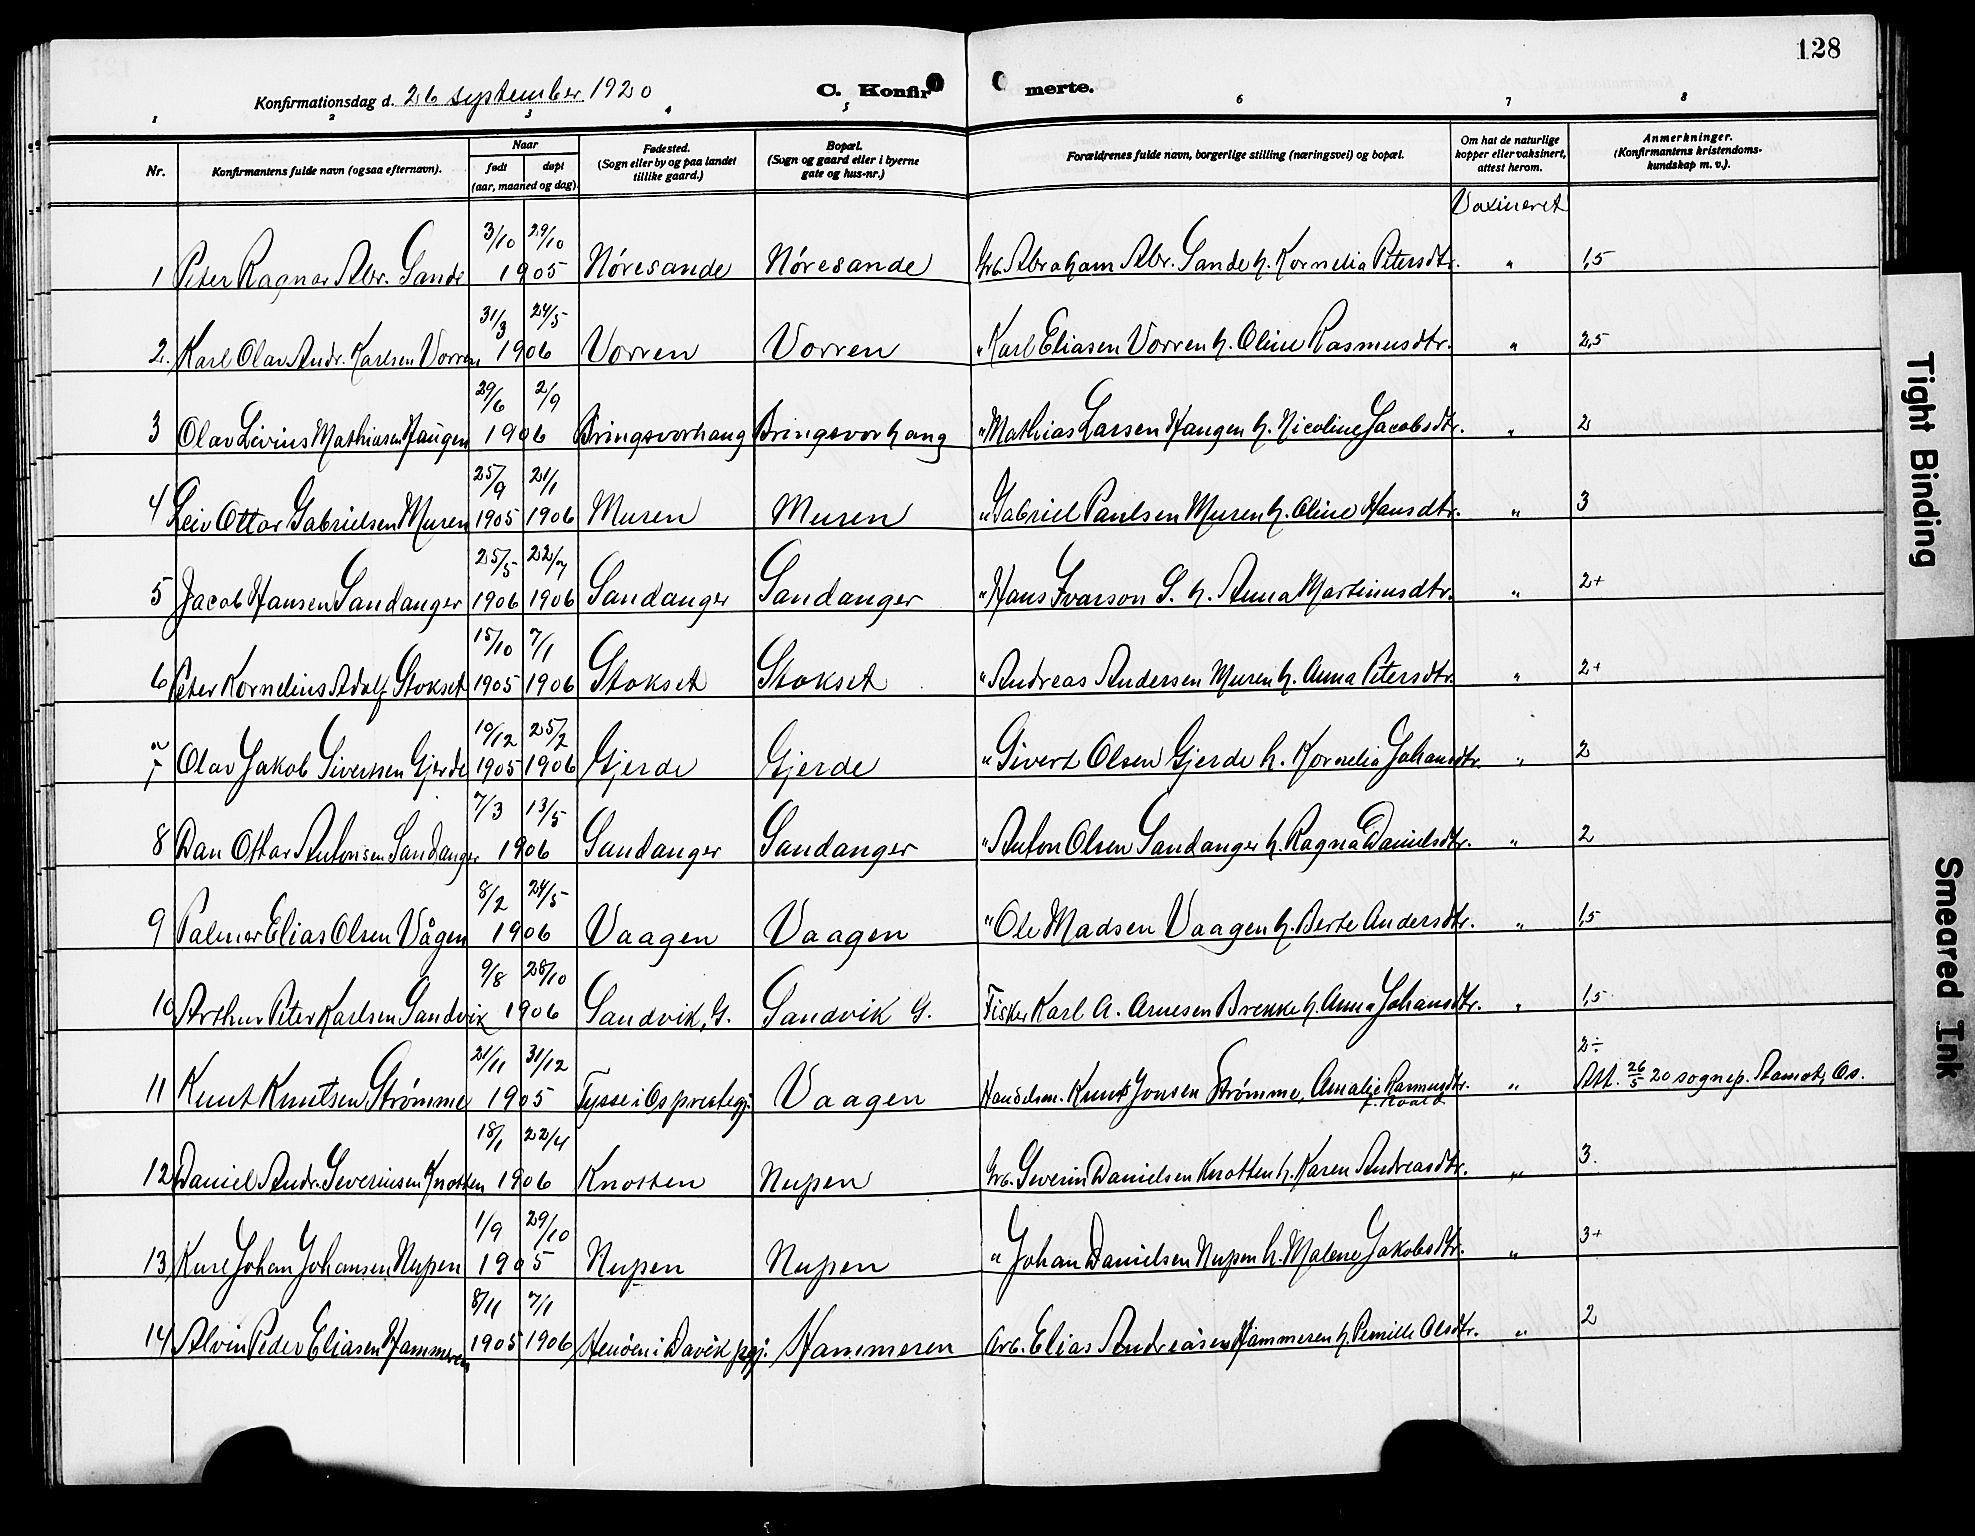 128
Konfirmationsdag d. 26 september 1920 C. Konfir merte.
1 2 3 4 5 6 7 8
Nr. Konfirmantens fulde navn (ogsaa efternavn). Naar født døpt (aar, maaned og dag) Fødested. (Sogn eller by og paa landet tillike gaard.) Bopæl. (Sogn og gaard eller i byerne gate og hus-nr.) Forældrenes fulde navn, borgerlige stilling (næringsvei) og bopæl. Om hat de naturlige kopper eller vaksinert, attest herom. Anmerkninger. (Konfirmantens kristendoms-kundskap m. v.).
Vaxineret
1 Peter Ragnar Abr. Sande 3/10 29/10 1905 Nóresande Nóresande Grb. Abraham Abr. Sande h. Kornelia Petersdtr. " 1,5
2. Karl Olav Andr. Karlsen Vorren 31/3 24/5 1906 Vorren Vorren " Karl Eliasen Vorren h. Oline Rasmusdtr. " 2,5
3 Olav Livius Mathiasen Haugen 29/6 2/9 1906 Bringsvorhaug Bringsvorhaug " Mathias Larsen Haugen h. Nicoline Jacobsdtr. " 2
4 Leiv Ottar Gabrielsen Muren 25/9 1905 21/1 1906 Muren Muren " Gabriel Paulsen Muren h. Oline Hansdtr. " 3
5 Jacob Hansen Sandanger 25/5 1906 22/7 1906 Sandanger Sandanger " Hans Ivarson S. h. Anna Martinusdtr. " 2+
6 Peter Kornelius Adolf Stokset 15/10 1905 7/1 1906 Stokset Stokset " Andreas Andersen Muren h. Anna Petersdtr. " 2+
7 Olav Jakob Sivertsen Gjerde 10/12 1905 25/2 1906 Gjerde Gjerde " Sivert Olsen Gjerde h. Kornelia Johansdtr. " 2
8 Dan Ottar Antonsen Sandanger 7/3 13/5 1906 Sandanger Sandanger " Anton Olsen Sandanger h. Ragna Danielsdtr. " 2
9 Palmer Elias Olsen Vågen 8/2 24/5 1906 Vaagen Vaagen " Ole Madsen Vaagen h. Berte Andersdtr. " 1,5
10 Arthur Peter Karlsen Sandvik 9/8 28/10 1906 Sandvik, G. Sandvik G. Fisker Karl A. Arnesen Brekke h. Anna Johansdtr. " 1,5
11 Knut Knutsen Strømme 21/11 31/12 1905 Tysse i Os prestegj. Vaagen Handelsm. Knut Jonsen Strømme, Amalie Rasmusdtr. f. Roald " 2÷ Att. 26/5 20 sognep. Os.
12 Daniel Andr. Severinsen Knotten 18/1 22/4 1906 Knotten Nupen Grb. Severin Danielsen Knotten h. Karen Andreasdtr. " 3.
13 Karl Johan Johansen Nupen 1/9 29/10 1905 Nupen Nupen " Johan Danielsen Nupen h. Malene Jakobsdtr. " 3+
14 Alvin Peder Eliasen Hammeren 8/11 1905 7/1 1906 i Davik pgj. Hammeren Arb. Elias Andreasen Hammeren h. Pernille Olsdtr. " 2
Tight Binding
Smeared Ink